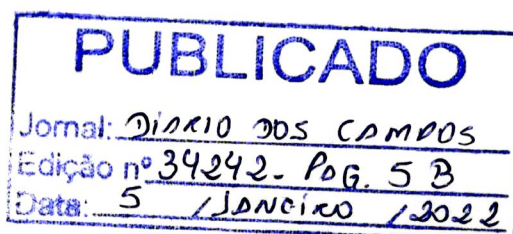 PUBLICADO
Jornal: DIARIO DOS CAMPOS
Edição nº 34242- PAG. 5 B
Data: 5 / JANEIRO / 2022